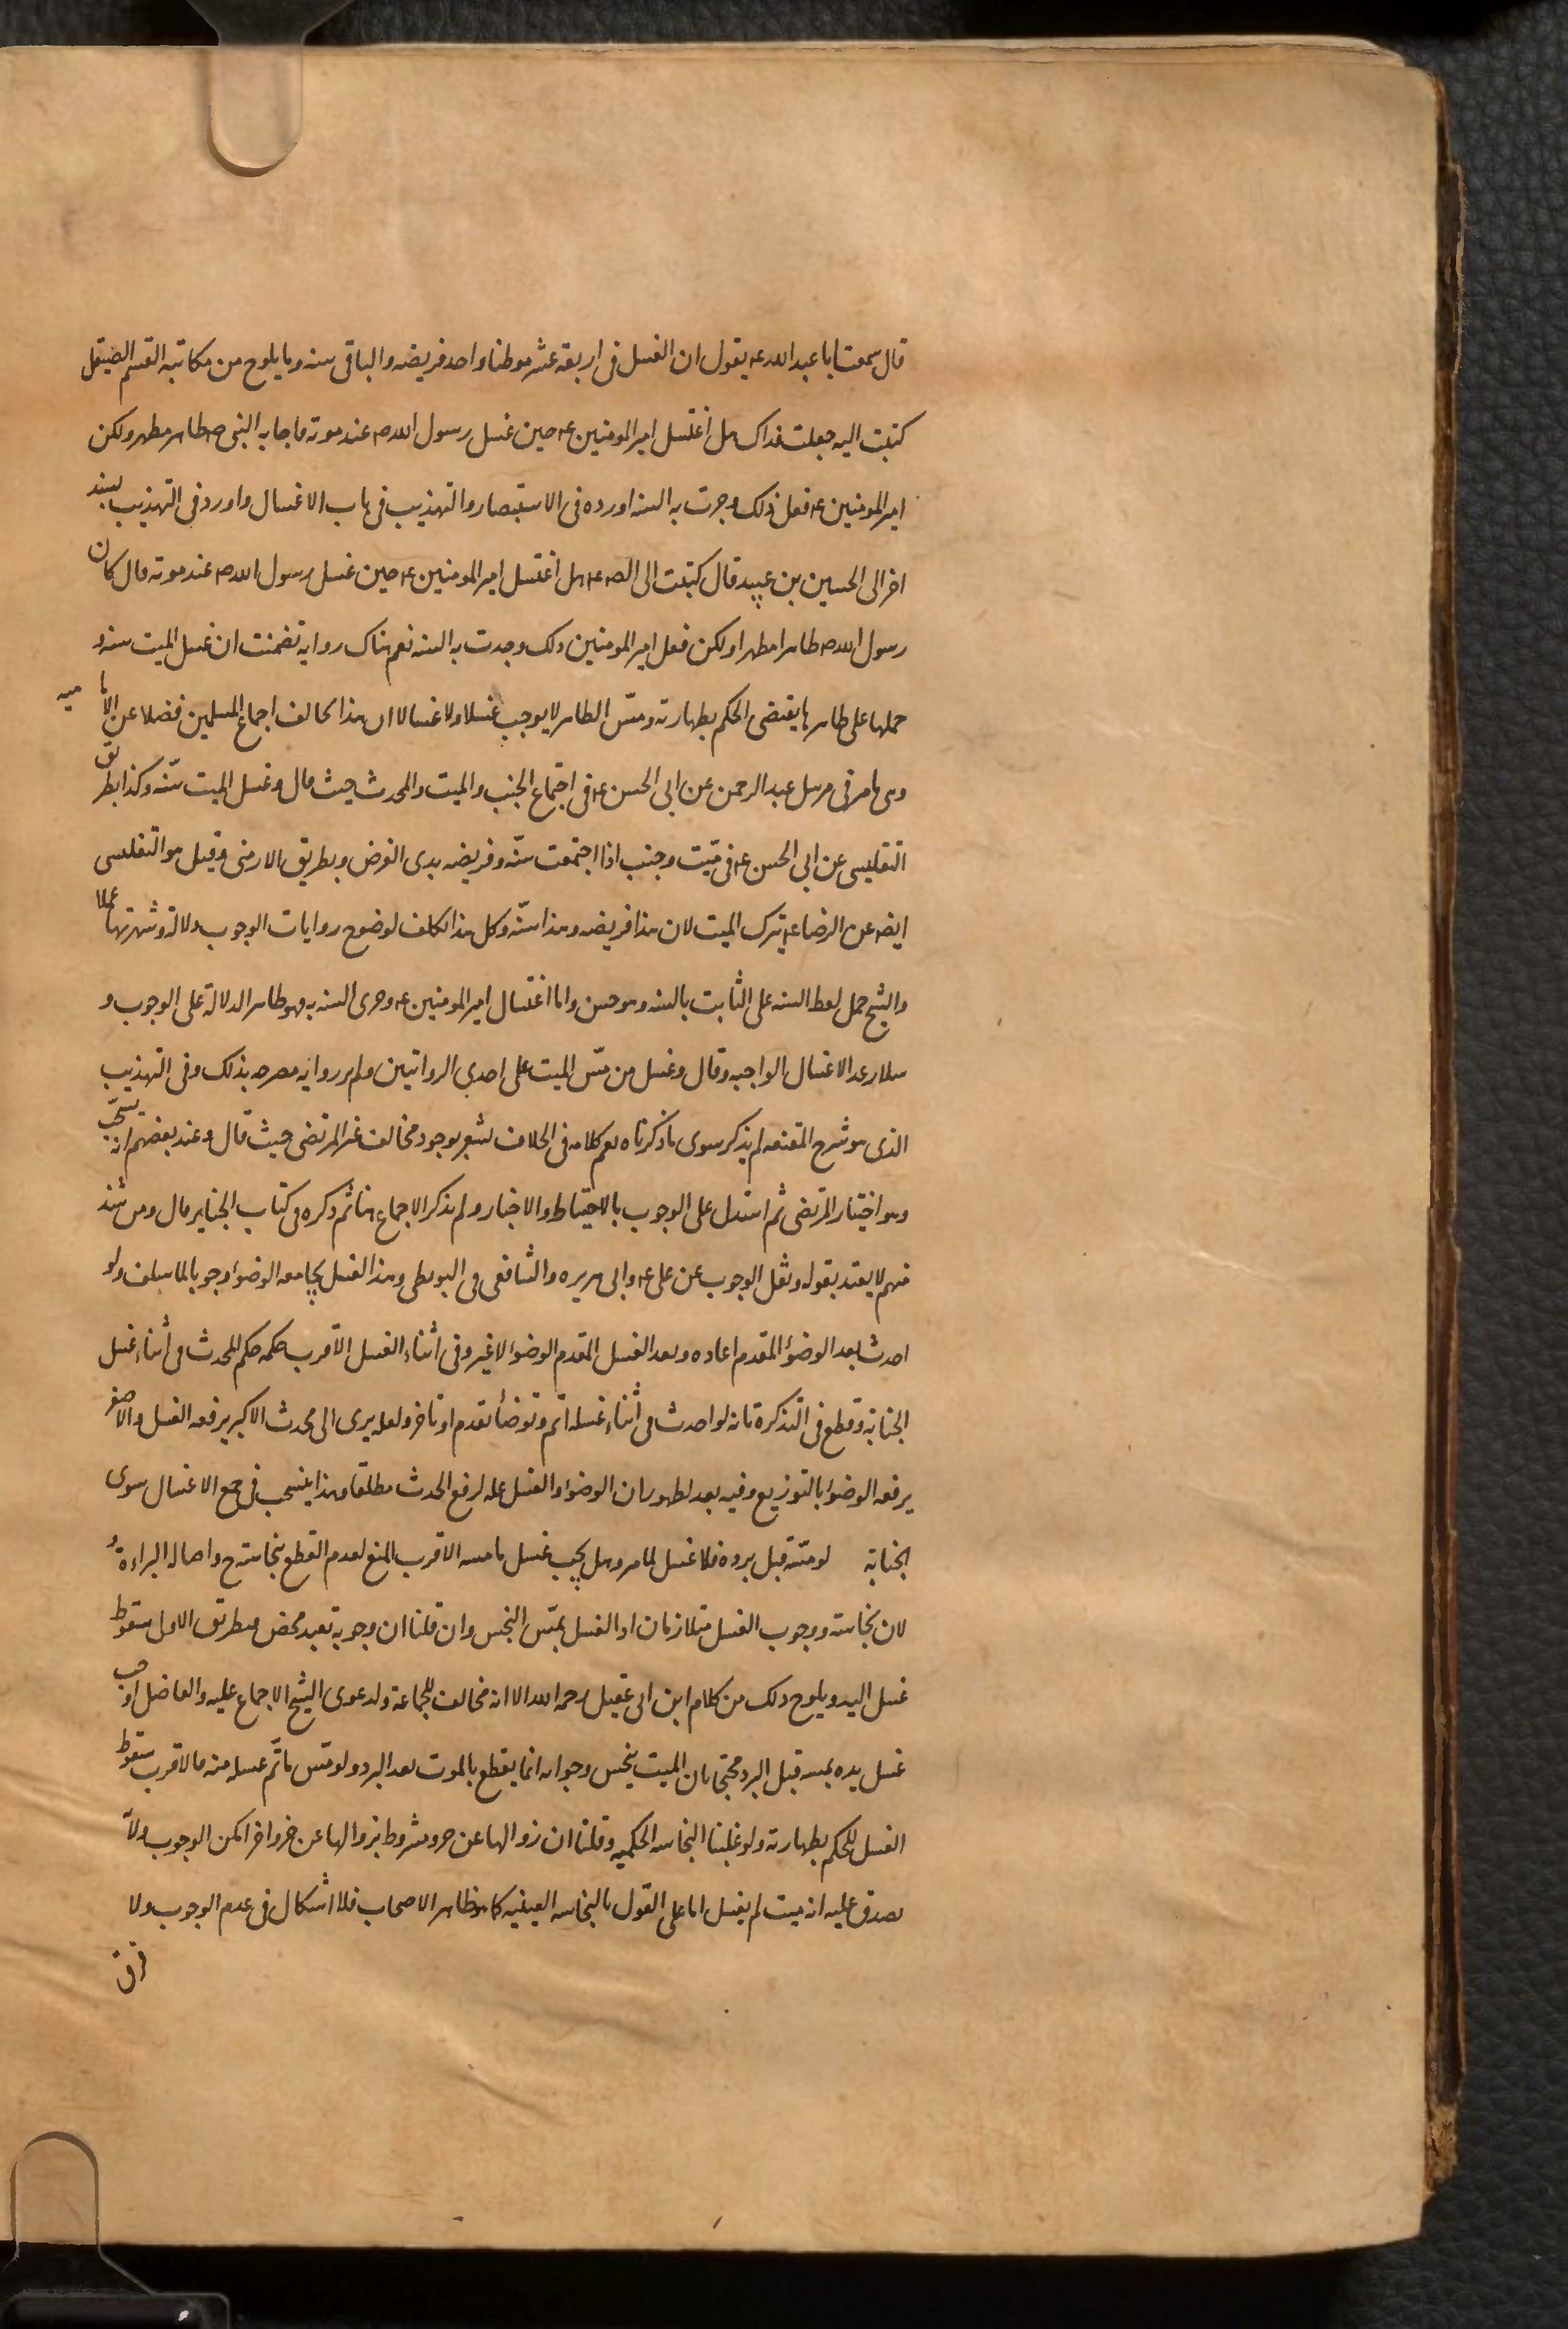 قال سمعت ابا عبد الله ع يقول ان الغسل فى اربعة عشر موطنا واحد فريضه والباقى سنه وما يلوح من مكاتبه القسم الصيقل
كتبت اليه جعلت فداك هل اغتسل امير المومنين ع حين غسل رسول الله ص عند موته فاجابه النبى ص طاهر مطهر ولكن
امير المومنين ع فعل ذلك وجرت به السنه اورده فى الاستبصار والتهذيب فى باب الاغسال واورد فى التهذيب بسند
اخر الى الحسين بن عبيد قال كتبت الى الص ع هل اغتسل امير المومنين ع حين غسل رسول الله ص عند موته قال كان
رسول الله ص طاهرا مطهرا ولكن فعل امير المومنين ذلك وجرت به السنه نعم هناك روايه تضمنت ان غسل الميت سنه و
حملها على ظاهرها يقتضى الحكم بطهارته ومسّ الطاهر لا يوجب غسلا ولا غسالا الا ان هذا يخالف اجماع المسلمين فضلا عن الاماميه
وهى ما مر فى مرسل عبد الرحمن عن ابى الحسن ع فى اجتماع الجنب والميت والمحدث حيث قال وغسل الميت سنّه وكذا بطريق
التفليسى عن ابى الحسن ع فى ميّت وجنب اذا اجتمعت سنّه وفريضه بدى الفرض وبطريق الارمنى وقيل هو التفلسى
ايضه عن الرضا ع يترك الميت لان هذا فريضه وهذا سنّه وكل هذا تكلف لوضوح روايات الوجوب دلالة وشهرتها عملا
والشيخ حمل لفظ السنه على الثابت بالسنه وهو حسن واما اغتسال امير المومنين ع وجرى السنه به فهو ظاهر الدلالة على الوجوب و
سلار عد الاغسال الواجبه وقال وغسل من مسّ الميت على احدى الروايتين ولم نر روايه مصرحه بذلك وفى التهذيب
الذى هو شرح المقنعه لم يذكر سوى ما ذكرناه نعم كلامه فى الخلاف يشعر بوجود مخالف غير المرتضى حيث قال وعند بعضهم انه يستحبّ
وهو اختيار المرتضى ثم استدل على الوجوب بالاحتياط والاخبار ولم يذكر الاجماع هنا ثم ذكره فى كتاب الجنايز قال ومن شذ
منهم لا يعتد بقوله ونقل الوجوب عن على ع وابى هريره والشافعى فى البويطى وهذا الغسل يجامعه الوضوا وجوبا لما سلف ولو
احدث بعد الوضوء المقدم اعاده وبعد الغسل المقدم الوضوا لا غير وفى اثناء الغسل الاقرب حكمه حكم المحدث فى اثناء غسل
الجنابة وقطع فى التذكرة بانه لو احدث فى اثناء غسله اتم وتوضأ تقدم او تاخر ولعله يرى الى محدث الاكبر يرفعه الغسل والاصغر
يرفعه الوضوا بالتوزيع وفيه بعد لظهور ان الوضوا والغسل عله لرفع الحدث مطلقا وهذا ينسحب فى جميع الاغسال سوى
الجنابة لو مسّه قبل برده فلا غسل لما مر وهل يجب غسل ما مسه الاقرب المنع لعدم القطع بنجاسته ح واصاله البراءة و
لان نجاسته ووجوب الغسل متلازمان اذ الغسل بمسّ النجس وان قلنا ان وجوبه تعبد محض فبطريق الاول سقوط
غسل اليد ويلوح ذلك من كلام ابن ابى عقيل رحمه الله الا انه مخالف للجماعة ولدعوى الشيخ الاجماع عليه والفاضل اوجب
غسل يده بمسه قبل البرد محتجا بان الميت ينجس وجوابه انما يقطع بالموت بعد البرد ولو مسّ ما تّم غسله منه فالاقرب سقوط
الغسل للحكم بطهارته ولو غلبنا النجاسه الحكميه وقلنا ان زوالها عن جزو مشروط بزوالها عن جزو اخر امكن الوجوب ولا
يصدق عليه انه ميت لم يغسل اما على القول بالنجاسه العينيه كما هو ظاهر الاصحاب فلا اشكال فى عدم الوجوب ولا